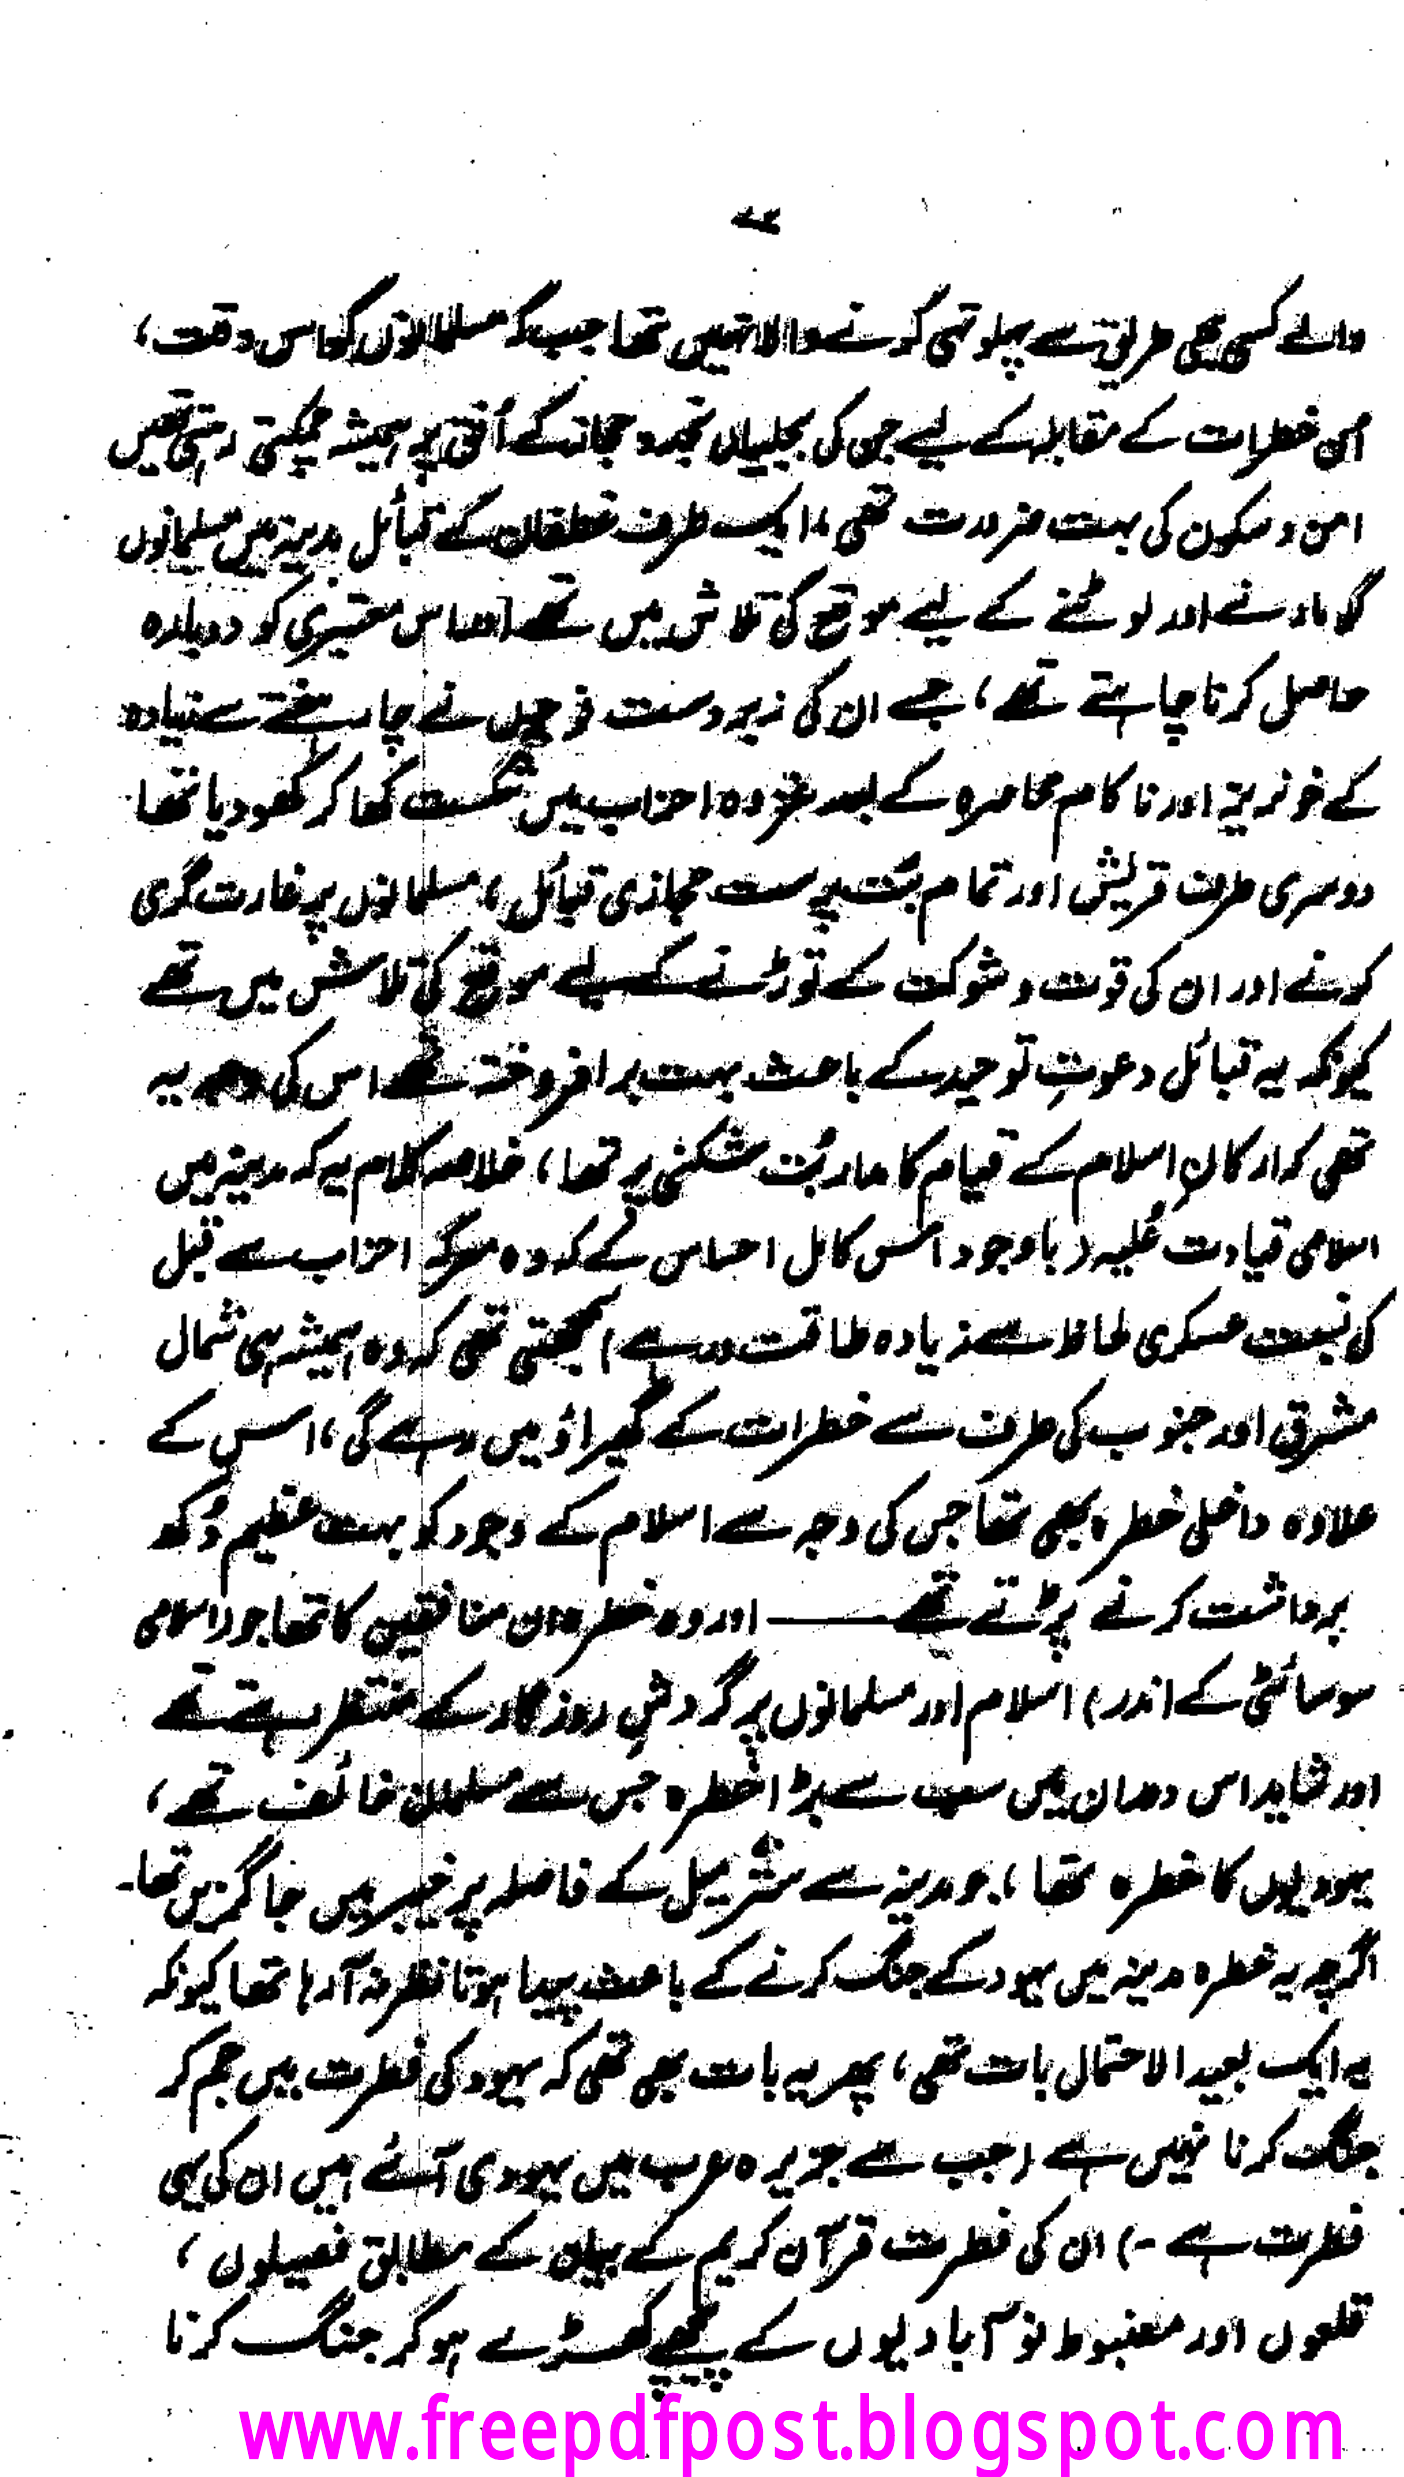 والے کسی بھی طریق سے پہلو تہی کرنے والا نہیں تھا جب کہ مسلمانوں کو اس وقت،
اُن خطرات کے مقابلہ کے لیے جن کی بجلیاں نجد و حجاز کے اُفق پر ہمیشہ چمکتی رہتی تھیں
امن و سکون کی بہت ضرورت تھی، ایک طرف غطفان کے قبائل مدینہ میں مسلمانوں
کو مارنے اور لوٹنے کے لیے موقع کی تلاش میں تھے اور اس کو دوبارہ
حاصل کرنا چاہتے تھے، جسے ان کی زبردست فوجوں نے چار ہفتے سے زیادہ
کے خونریز اور ناکام محاصرہ کے بعد غزوہ احزاب میں شکست کھا کر کھو دیا تھا
دوسری طرف قریش اور تمام بُت پرست حجازی قبائل، مسلمانوں پر غارت گری
کرنے اور ان کی قوت و شوکت کے توڑنے کے لیے موقع کی تلاش میں تھے
کیونکہ یہ قبائل دعوتِ توحید کے باعث بہت برافروختہ تھے اس کی وجہ یہ
تھی کہ ارکانِ اسلام کے قیام کا مدار بُت شکنی پر تھا، خلاصہ کلام یہ کہ مدینہ میں
اسلامی قیادت عُلیہ (باوجود اس کامل احساس کے کہ وہ معرکہ احزاب سے قبل
کی نسبت عسکری لحاظ سے زیادہ طاقت ور ہے) سمجھتی تھی کہ وہ ہمیشہ ہی شمال
مشرق اور جنوب کی طرف سے خطرات کے گھیراؤ میں رہے گی، اس کے
علاوہ داخلی خطرہ بھی تھا جس کی وجہ سے اسلام کے وجود کو بہت عظیم دُکھ
برداشت کرنے پڑتے تھے ——— اور وہ خطرہ ان منافقین کا تھا جو (اسلامی
سوسائٹی کے اندر) اسلام اور مسلمانوں پر گردشِ روزگار کے منتظر رہتے تھے
اور شاید اس دوران میں سب سے بڑا خطرہ جس سے مسلمان خائف تھے،
یہودیوں کا خطرہ تھا، جو مدینہ سے ستّر میل کے فاصلہ پر خیبر میں جاگزیں تھا۔
اگرچہ یہ خطرہ مدینہ میں یہود کے جنگ کرنے کے باعث پیدا ہوتا نظر نہ آ رہا تھا کیونکہ
یہ ایک بعید الاحتمال بات تھی، پھر یہ بات بھی تھی کہ یہود کی فطرت میں جم کر
جنگ کرنا نہیں ہے (جب سے جزیرہ عرب میں یہودی آئے ہیں ان کی یہی
فطرت ہے۔) ان کی فطرت قرآن کریم کے بیان کے مطابق فصیلوں،
قلعوں اور مضبوط نو آبادیوں کے پیچھے کھڑے ہو کر جنگ کرنا
www.freepdfpost.blogspot.com